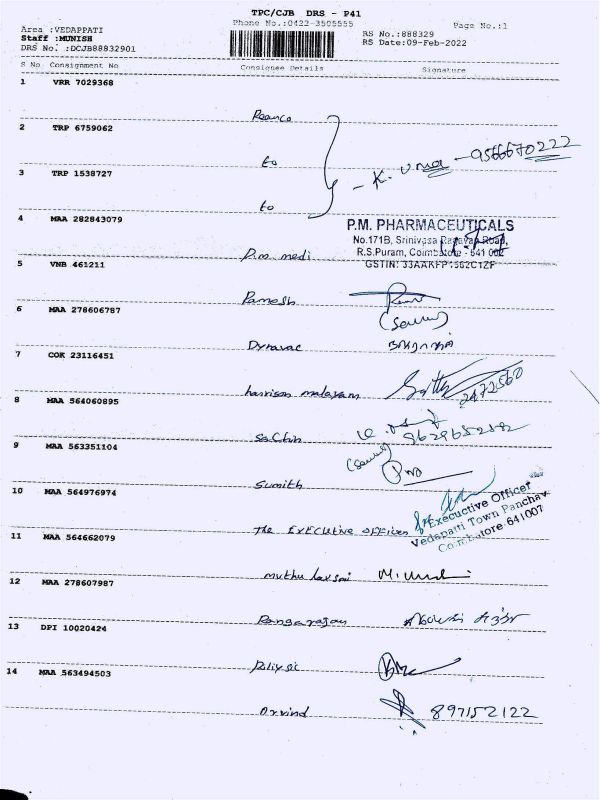 TPC/CJB DRS - P41
Phone No.:0422-3505555
Page No.:1
Area :VEDAPPATI
Staff :MUNISH
DRS No. :DCJB88832901
RS No.:888329
RS Date:09-Feb-2022
S No Consignment No Consignee Details Signature
1 VRR 7029368
2 TRP 6759062
to
K. Uma - 9566670222
3 TRP 1538727
to
4 MAA 282843079
P.M. PHARMACEUTICALS
No.171B, Srinivasa Ragavan Road,
R.S.Puram, Coimbatore - 641 002
P.m. medi
5 VNB 461211
Ramesh
6 MAA 278606787
7 COK 23116451
harrison malayam
2472560
8 MAA 564060895
Sachin
9 MAA 563351104
Sumith
10 MAA 564976974
The Executive officer
Executive Officer
Vedapatti Town Panchayat
Coimbatore 641007
11 MAA 564662079
muthu laxmi
12 MAA 278607987
Rangarajan
13 DPI 10020424
14 MAA 563494503
Arvind 897152122